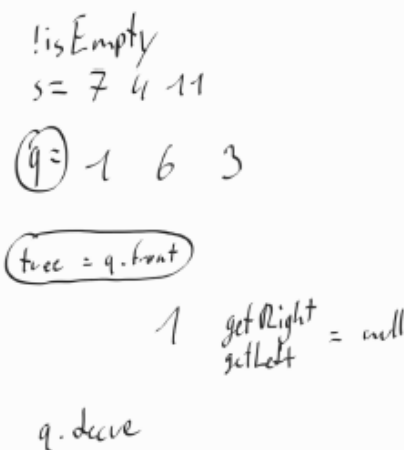 !isEmpty
s= 7 4 11
q= 1 6 3
tree = q.front
1 getRight
getLeft = null
q.